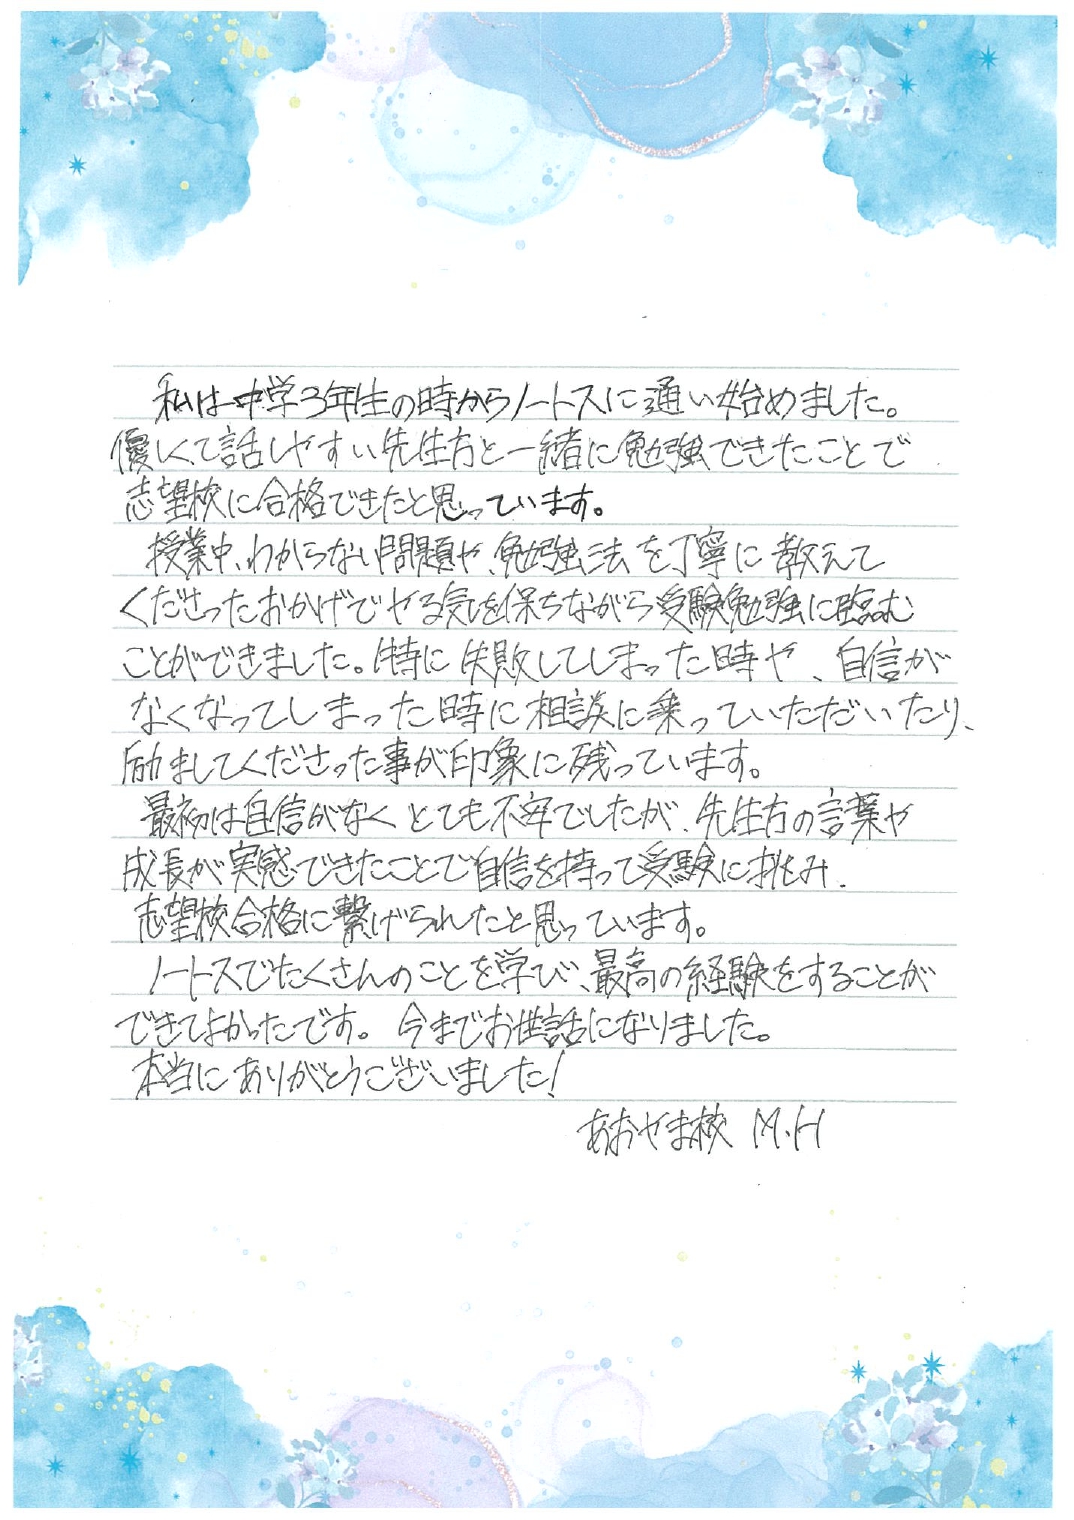 私は中学3年生の時からノートスに通い始めました。
優しくて話しやすい先生方と一緒に勉強できたことで
志望校に合格できたと思っています。
授業中、わからない問題や、勉強法を丁寧に教えて
くださったおかげでやる気を保ちながら受験勉強に臨む
ことができました。特に失敗してしまった時や、自信が
なくなってしまった時に相談に乗っていただいたり、
励ましてくださった事が印象に残っています。
最初は自信がなくとても不安でしたが、先生方の言葉や
成長が実感できたことで自信を持って受験に挑み、
志望校合格に繋げられたと思っています。
ノートスでたくさんのことを学び、最高の経験をすることが
できてよかったです。今までお世話になりました。
本当にありがとうございました!
あおやま校 M.H